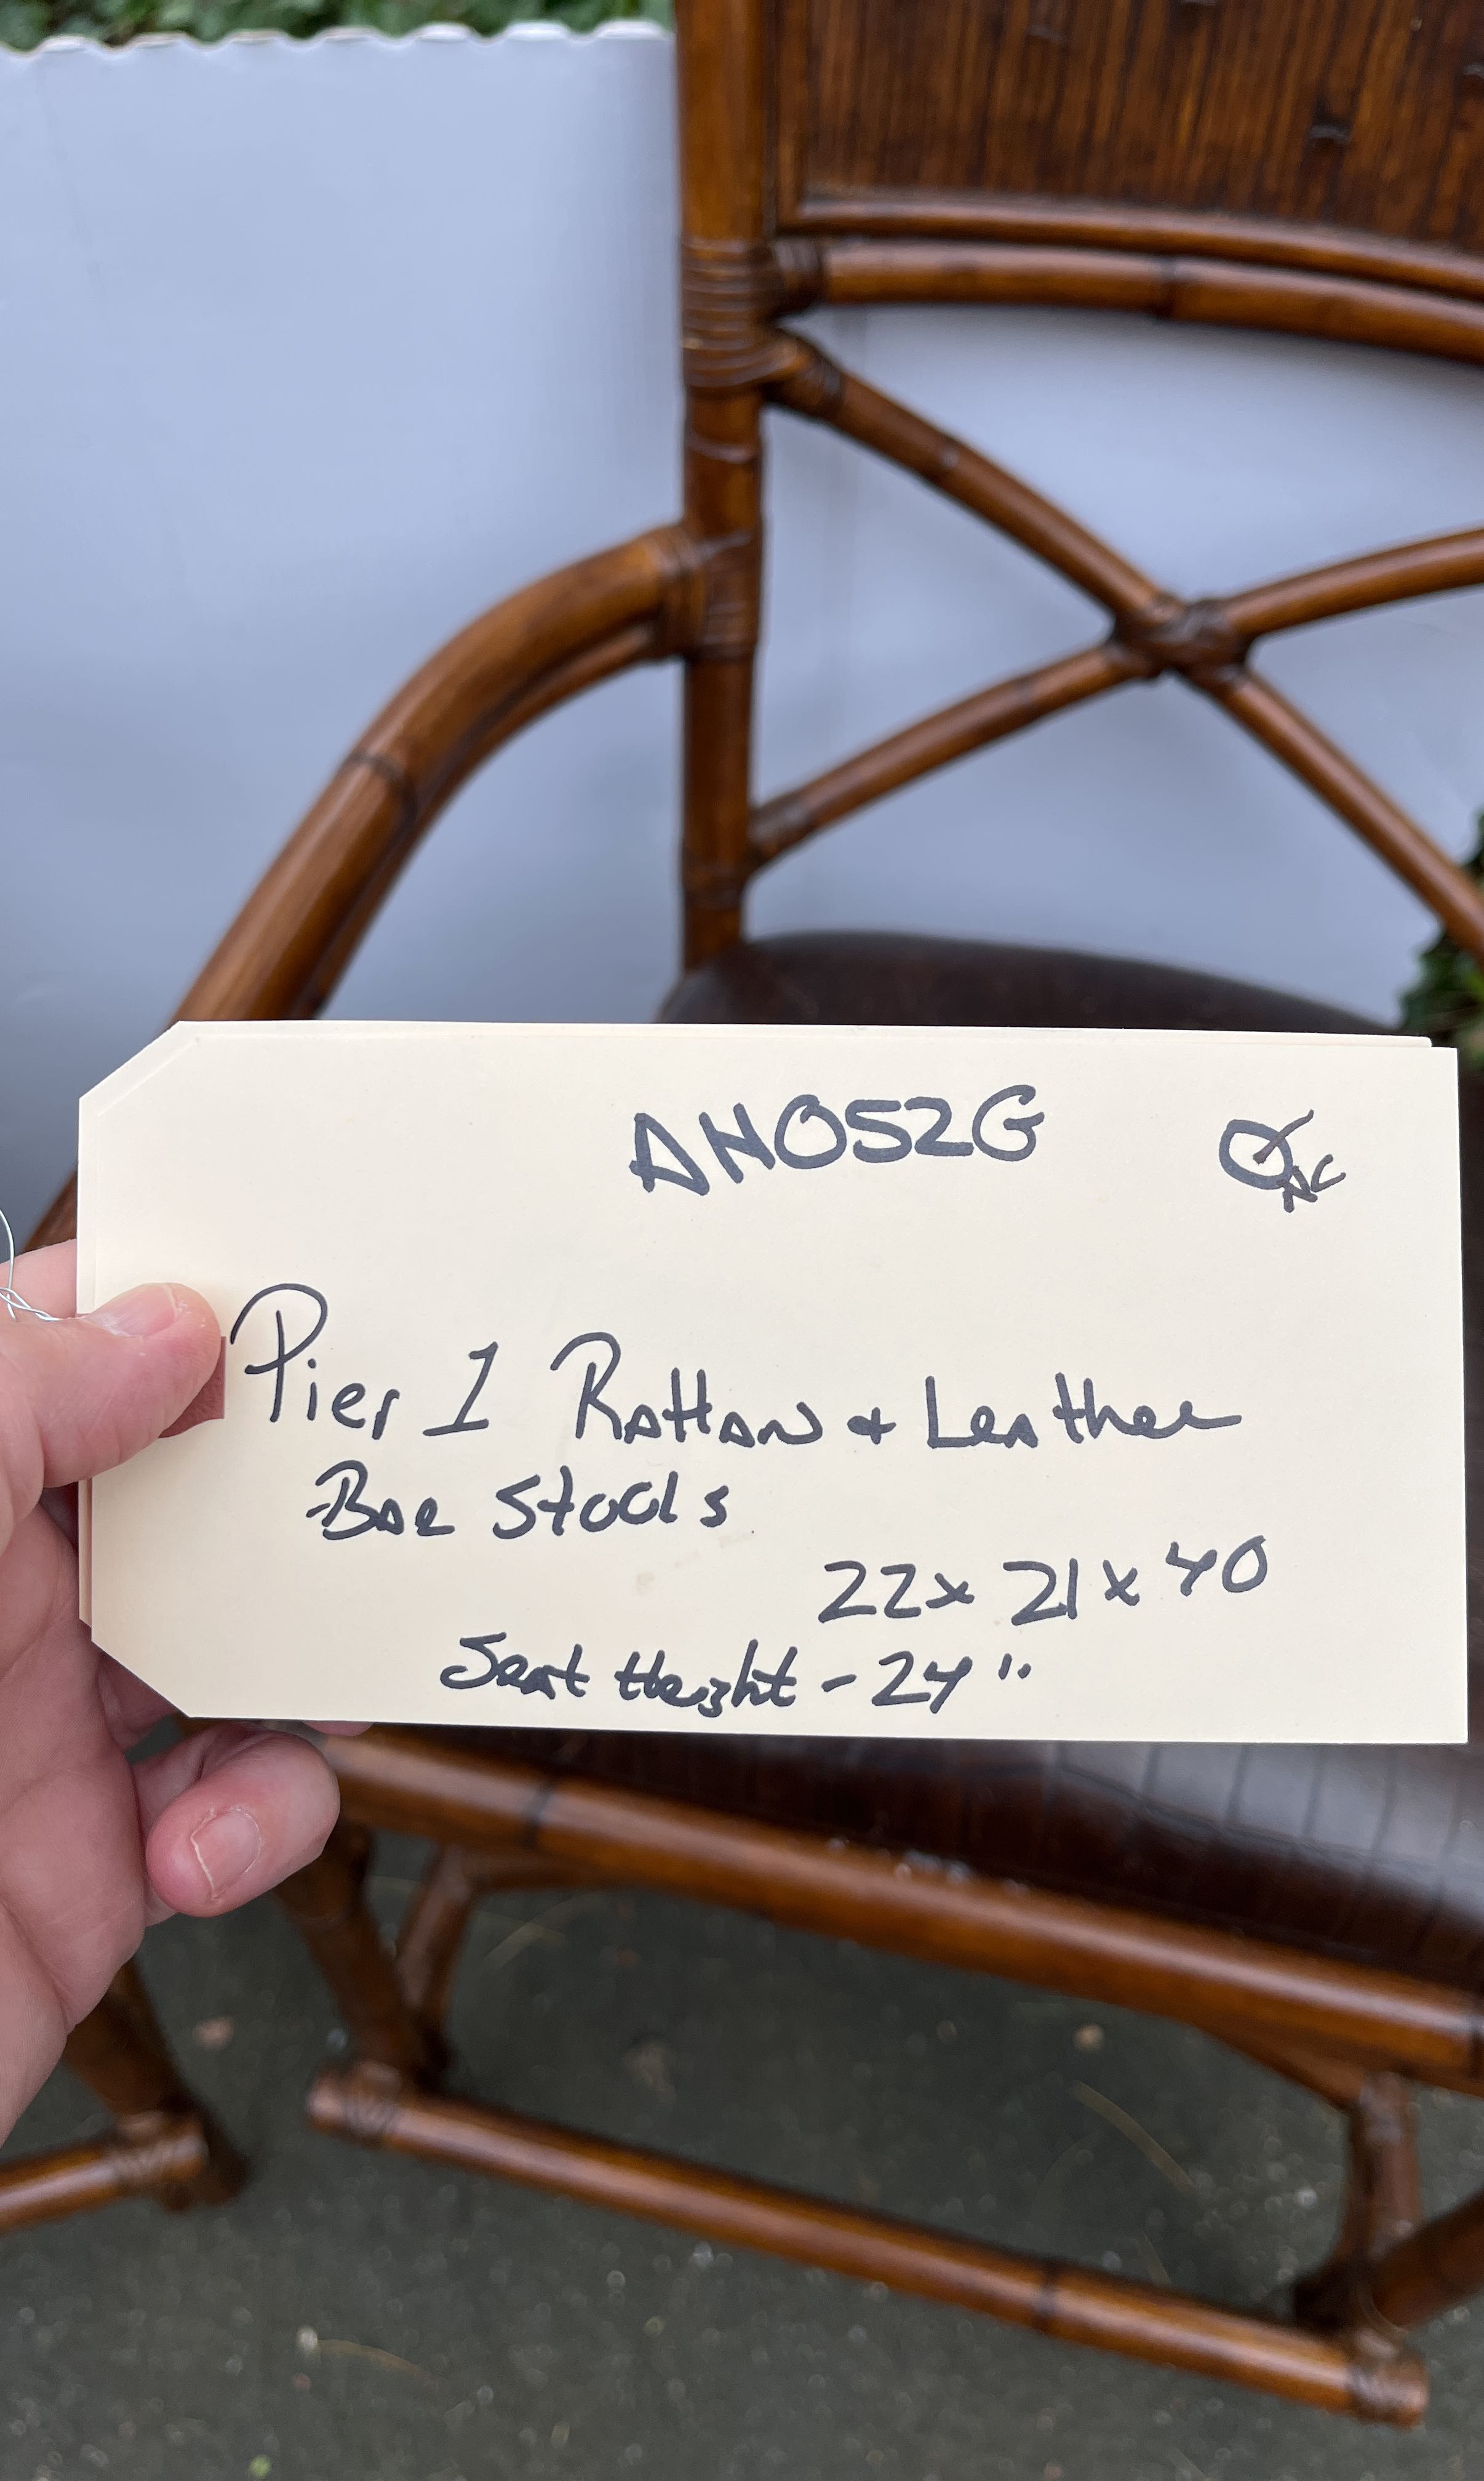 AH052G
Pier 1 Rattan + Leather
Bar Stools
22x 21x40
Seat Height - 24"